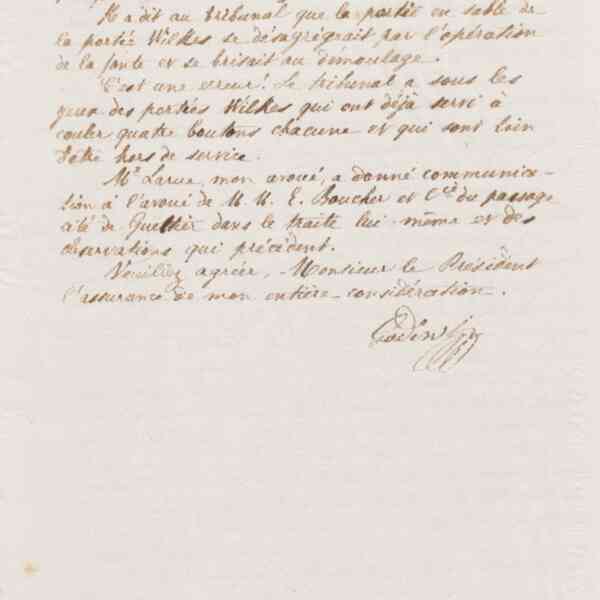 Il a dit au tribunal que la portée en sable de
la portée Wilkes se désagrégeait par l'opération
de la fonte et se brisait au démoulage.
C'est une erreur! Le tribunal a sous les
yeux des portées Wilkes qui ont déjà servi à
couler quatre boutons chacune et qui sont loin
d'être hors de service.
Me Larue, mon avoué, a donné communica-
tion à l'avoué de M. M. E. Boucher et Cie du passage
cité de Guettier dans le traité lui-même et des
observations qui précèdent.
Veuillez agréer, Monsieur le Président
l'assurance de mon entière considération.
Godin